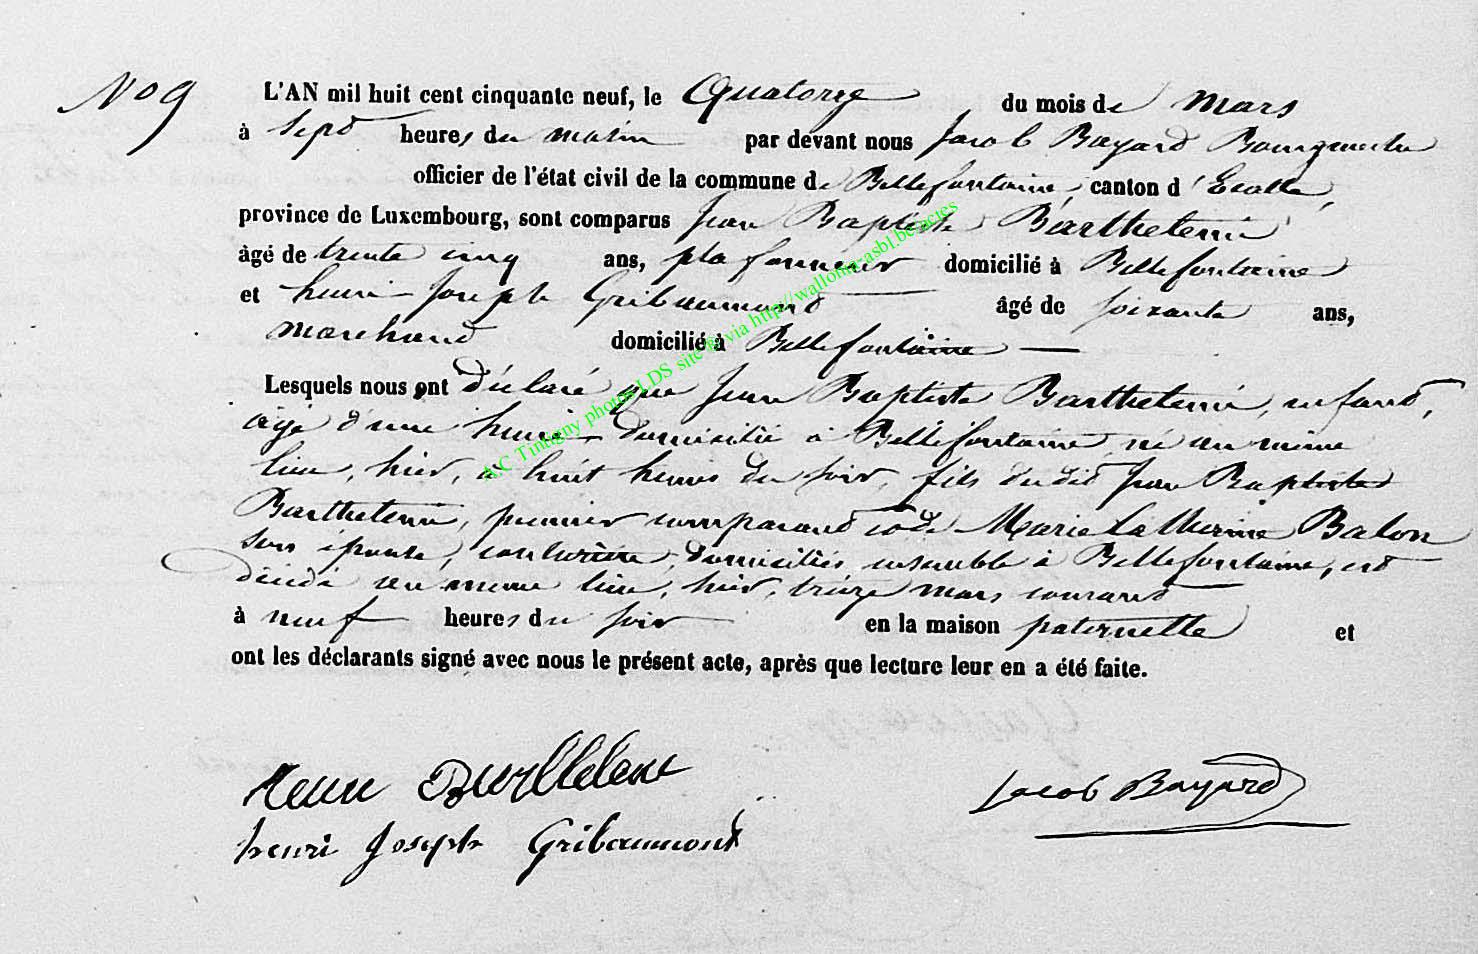 No 9
L'AN mil huit cent cinquante neuf, le Quatorze du mois de mars
à sept heures du matin par devant nous Jacob Bayard Bourgmestre
officier de l'état civil de la commune de Bellefontaine, canton d'Etalle,
province de Luxembourg, sont comparus Jean Baptiste Barthelemi
âgé de trente cinq ans, plafonneur domicilié à Bellefontaine
et henri Joseph Gribaumont âgé de soixante ans,
marchand domicilié à Bellefontaine
Lesquels nous ont déclaré que Jean Baptiste Barthelemi, enfant,
âgé d'une heure domicilié à Bellefontaine, né au même
lieu, hier, à huit heures du soir, fils dudit Jean Baptiste
Barthelemi, premier comparant et de Marie Catherine Balon
son épouse, couturière, domiciliés ensemble à Bellefontaine, est
décédé au même lieu, hier, treize mars courant
à neuf heures du soir en la maison paternelle et
ont les déclarants signé avec nous le présent acte, après que lecture leur en a été faite.
Jacob Bayard
henri Joseph Gribaumont
A.C Tintigny photos LDS site g via http//wallonia-asbl.be/actes